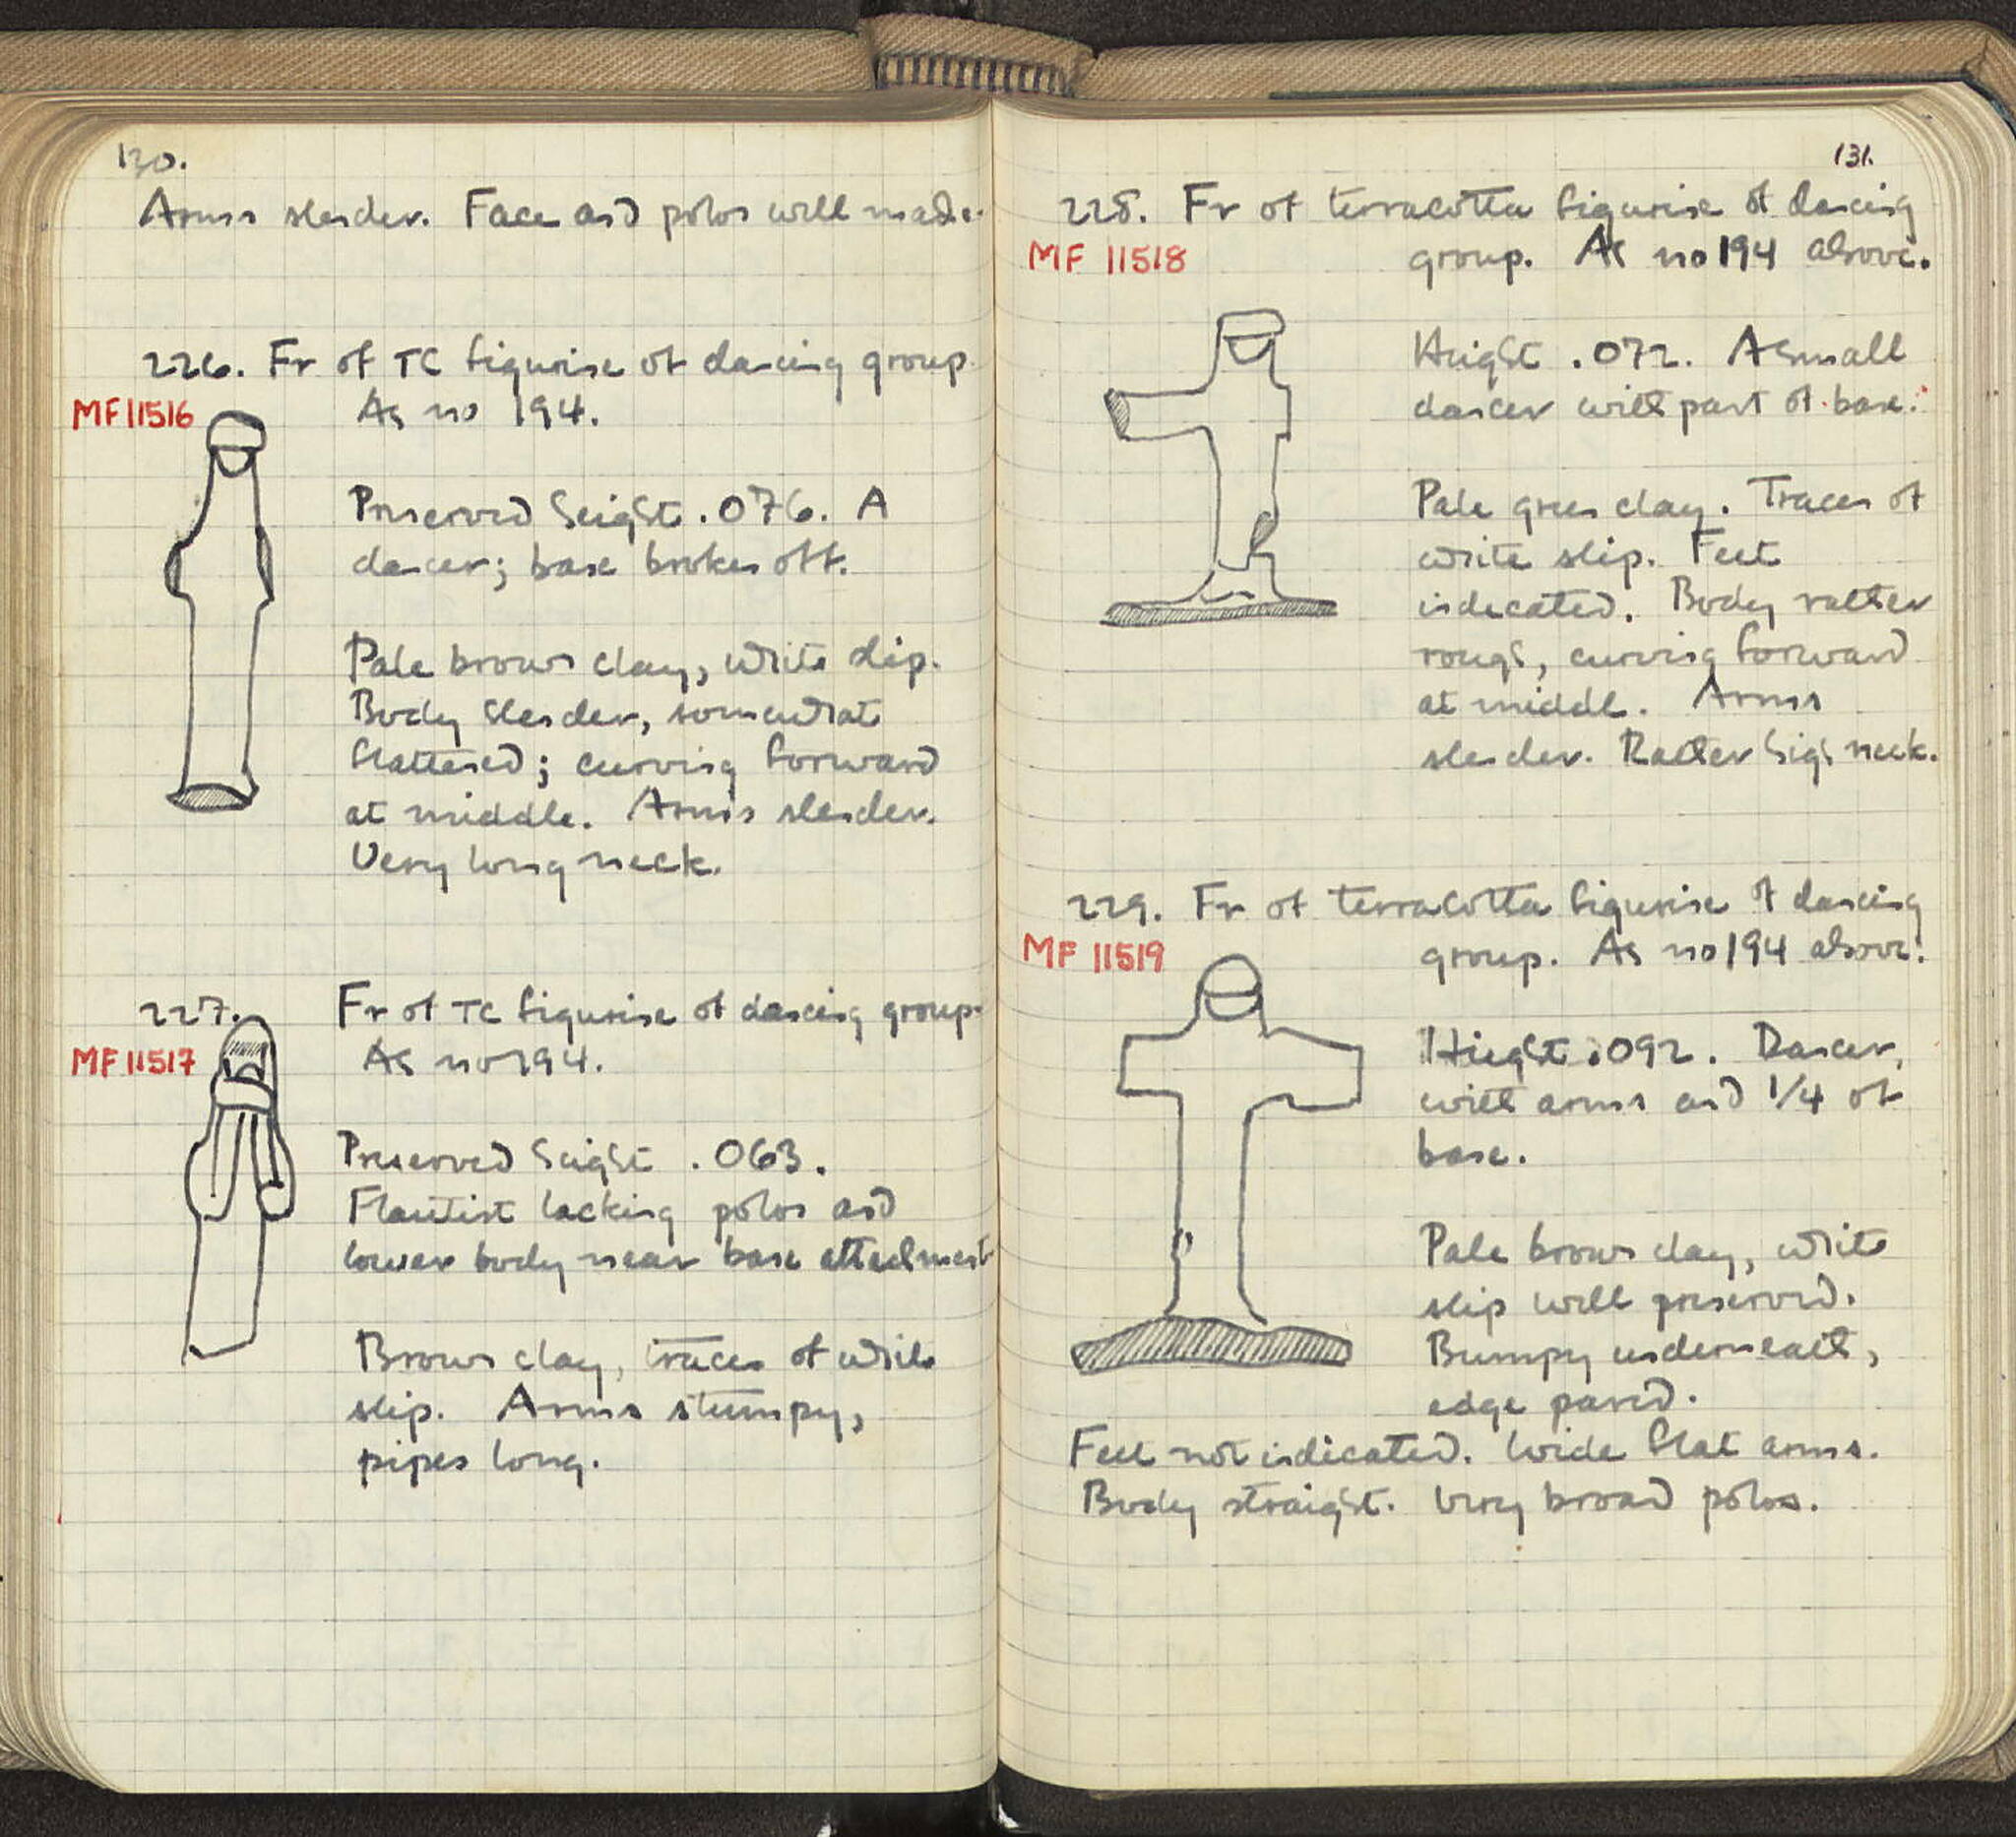 130.
Arms slender. Face and polos well made.
226. Fr of TC figurine of dancing group.
MF11516
As no 194.
Preserved height .076. A
dancer; base broken off.
Pale brown clay, white slip.
Body slender, somewhat
flattened; curving forward
at middle. Arms slender.
Very long neck.
227. Fr of TC figurine of dancing group.
MF11517
As no 194.
Preserved height .063.
Flautist lacking polos and
lower body near base attachment
Brown clay, traces of white
slip. Arms stumpy,
pipes long.
131.
228. Fr of terracotta figurine of dancing
MF 11518
group. As no 194 above.
Height .072. A small
dancer with part of base.
Pale green clay. Traces of
white slip. Feet
indicated. Body rather
rough, curving forward
at middle. Arms
slender. Rather high neck.
229. Fr of terracotta figurine of dancing
MF 11519
group. As no 194 above.
Height .092. Dancer,
with arms and 1/4 of
base.
Pale brown clay, white
slip well preserved.
Bumpy underneath,
edge pared.
Feet not indicated. Wide flat arms.
Body straight. Very broad polos.